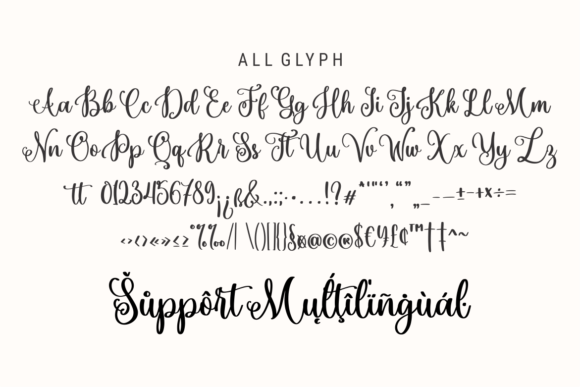 ALL GLYPH
Aa Bb Cc Dd Ee Ff Gg Hh Ii Jj Kk Ll Mm
Nn Oo Pp Qq Rr Ss Tt Uu Vv Ww Xx Yy Zz
tt 0123456789¡¿ß&.,:;·…!?#*'"‘’‚“”„_-–—±-+x÷=
‹›()«»≤≥°%‰/|\()[]{}§¤@©®$€¥£¢™†‡^~
Šůppôrt Mųĺţîľïñġùáŀ